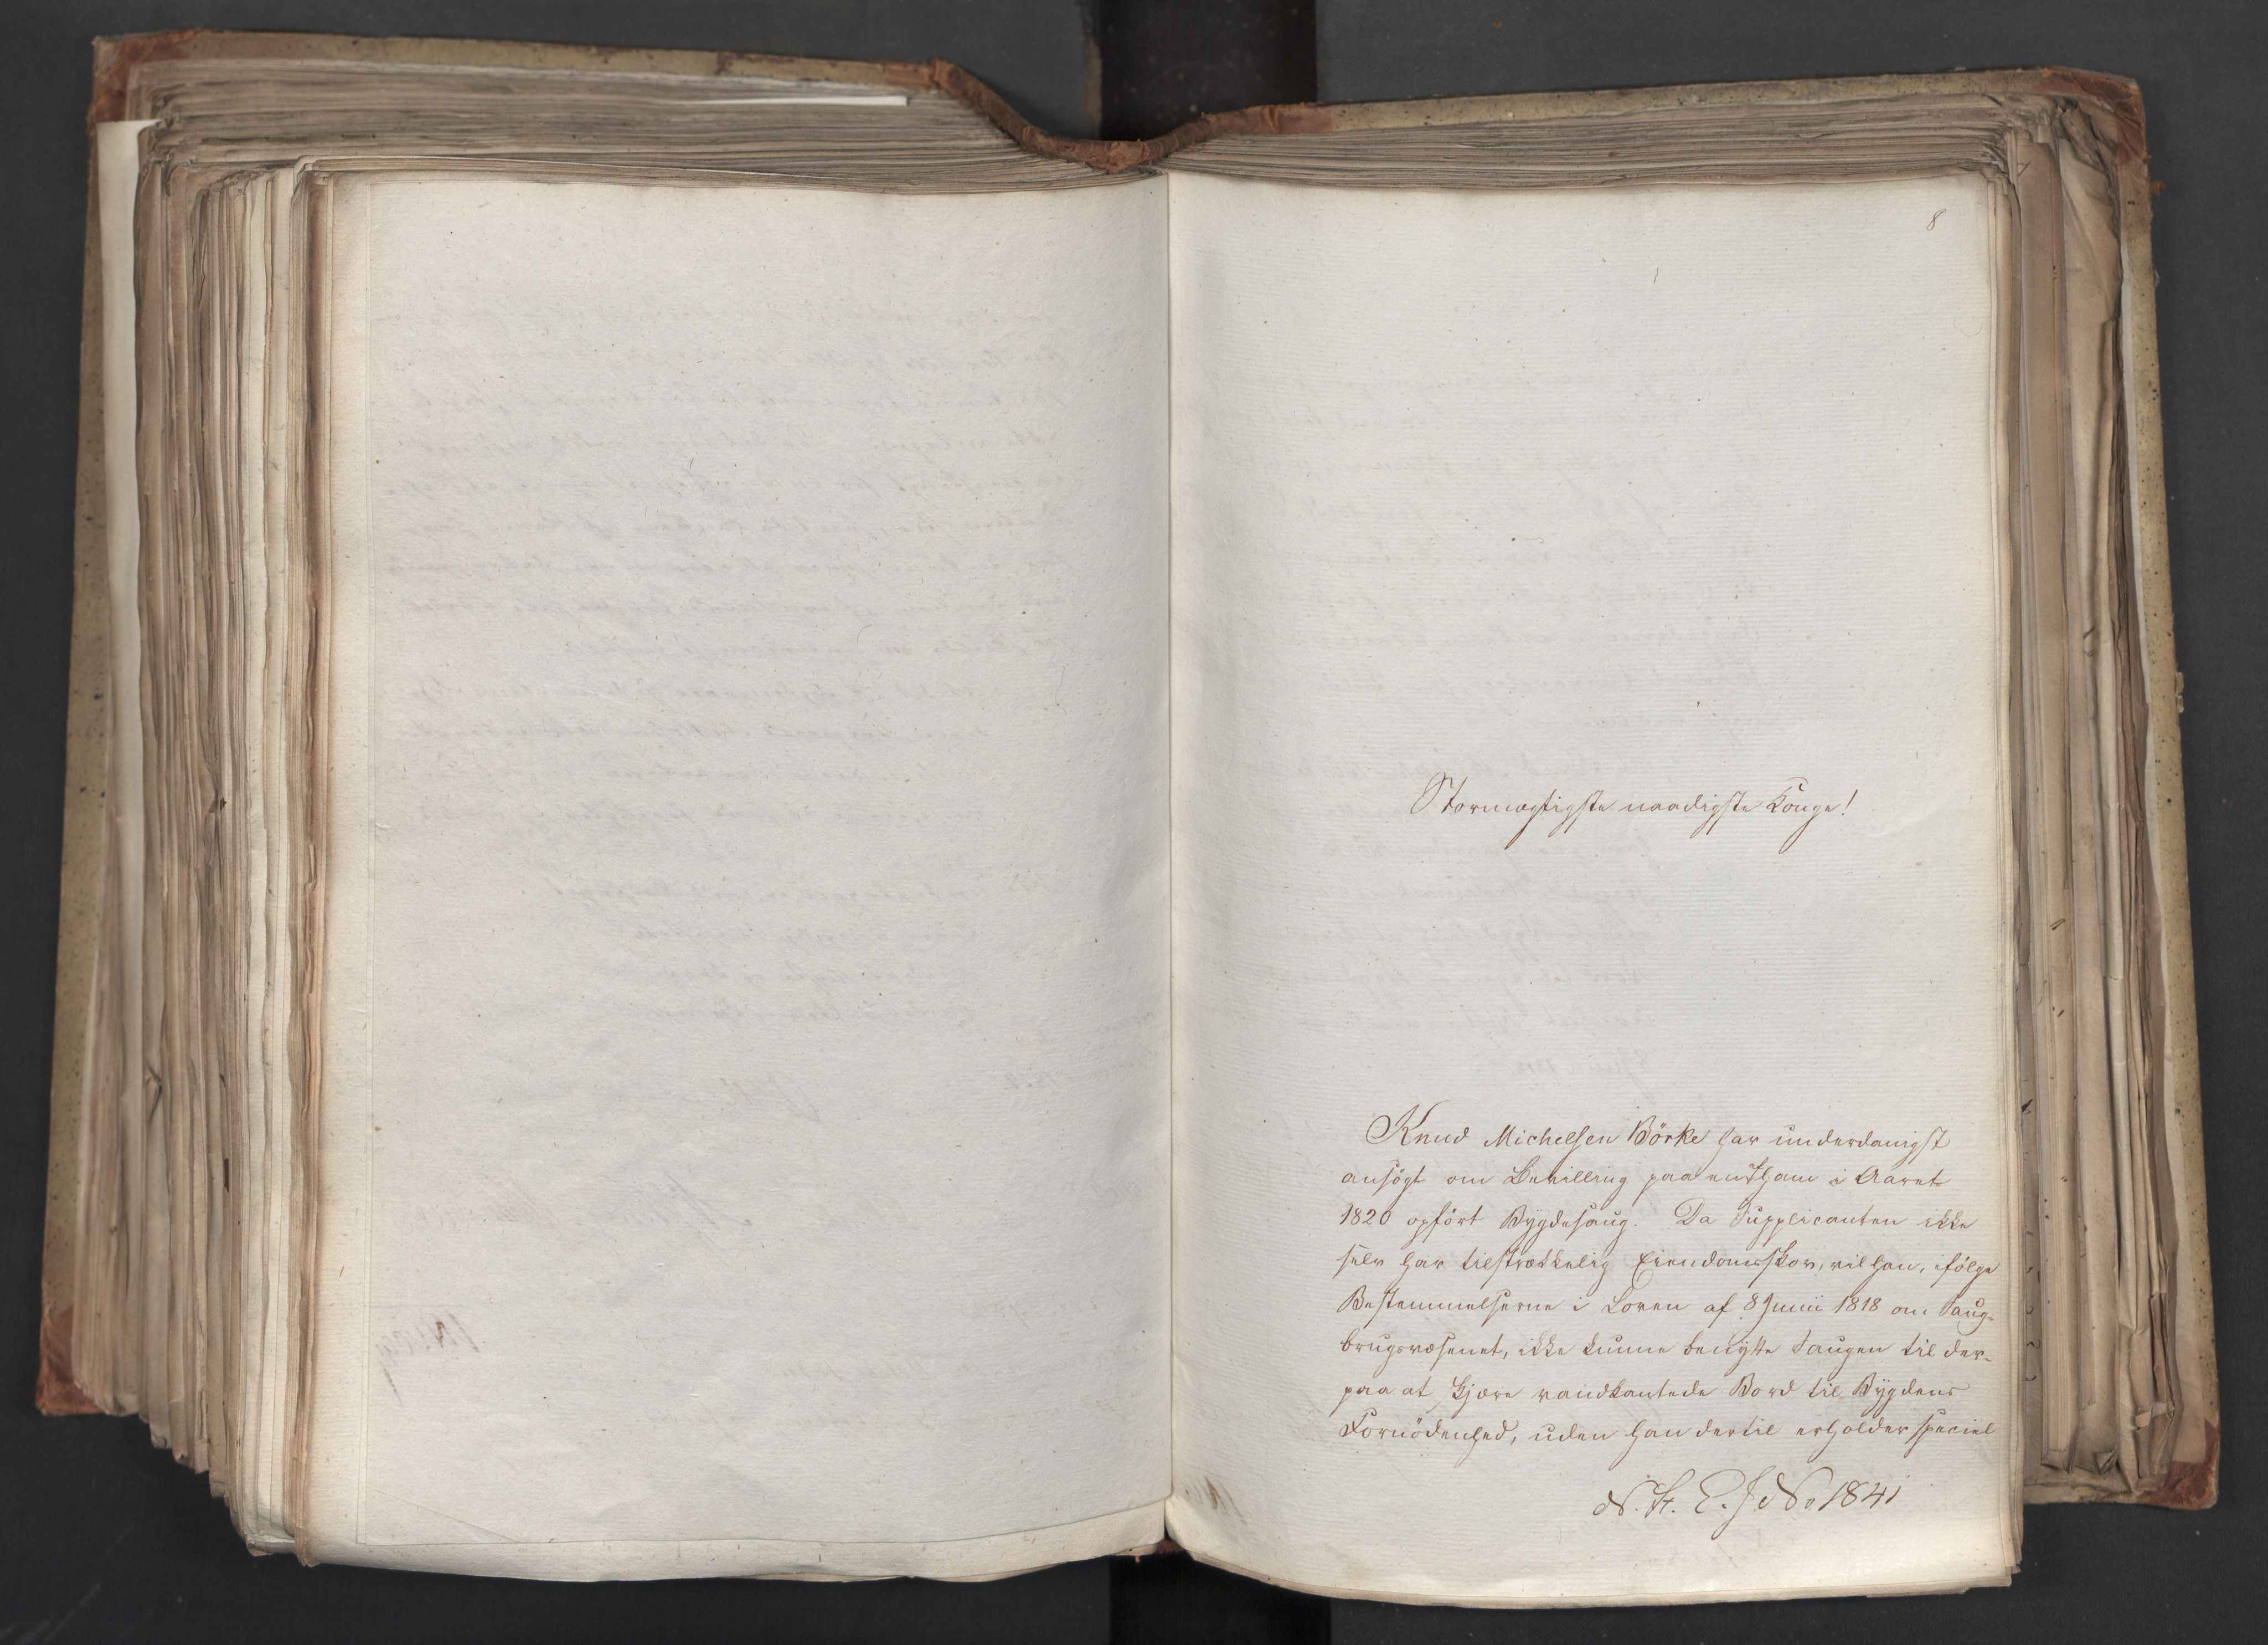 8
Stormægtigste naadigste Konge!
Knud Michelsen Börke har underdanigst
ansögt om Bevilling paa en af ham i Aaret
1820 opfört Bygdesaug. Da Supplicanten ikke
selv har tilstrækkelig Eiendomsskov, vil han, ifölge
Bestemmelserne i Loven af 8 Junii 1818 om Saug-
brugsvæsenet, ikke kunne benytte Saugen til der-
paa at skjære vandkantede Bord til Bygdens
Fornödenhed, uden han dertil erholder speciel
N. H. E. J No 1841